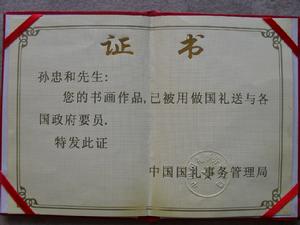 证书
孙忠和先生:
您的书画作品,已被用做国礼送与各
国政府要员.
特发此证
中国国礼事务管理局